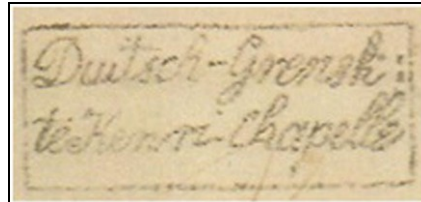 Duitsch-Grensk:
te Henri-Chapelle